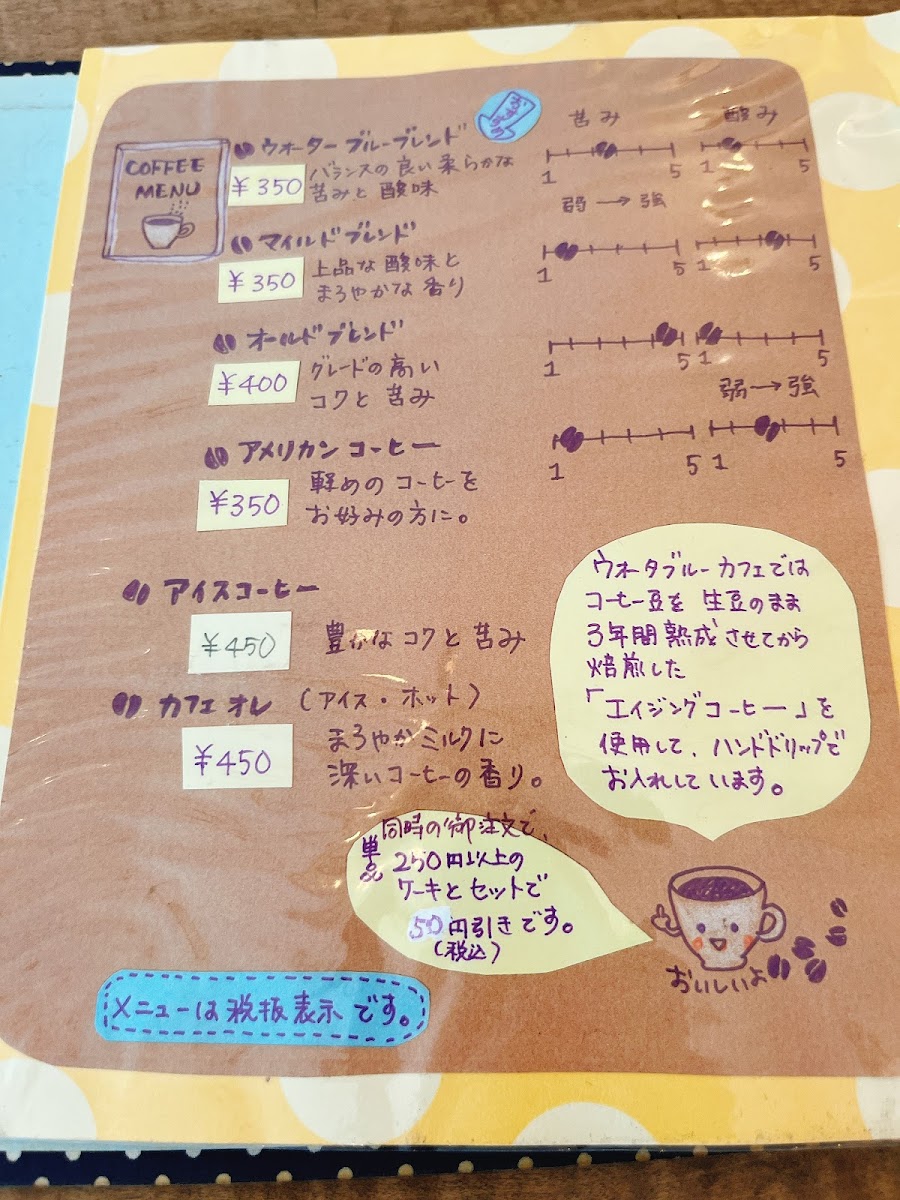 COFFEE
MENU
ウォーターブルーブレンド
¥350
バランスの良い柔らかな
苦みと酸味
苦み
酸み
1 5
1 5
弱→強
マイルドブレンド
¥350
上品な酸味と
まろやかな香り
1 5
1 5
オールドブレンド
¥400
グレードの高い
コクと苦み
1 5
1 5
弱→強
アメリカンコーヒー
¥350
軽めのコーヒーを
お好みの方に。
1 5
1 5
アイスコーヒー
¥450
豊かなコクと苦み
カフェオレ (アイス・ホット)
¥450
まろやかミルクに
深いコーヒーの香り。
ウォータブルーカフェでは
コーヒー豆を生豆のまま
3年間熟成させてから
焙煎した
「エイジングコーヒー」を
使用して、ハンドドリップで
お入れしています。
同時の御注文で、
単品250円以上の
ケーキとセットで
50円引きです。
(税込)
おいしいよ
メニューは税抜表示です。